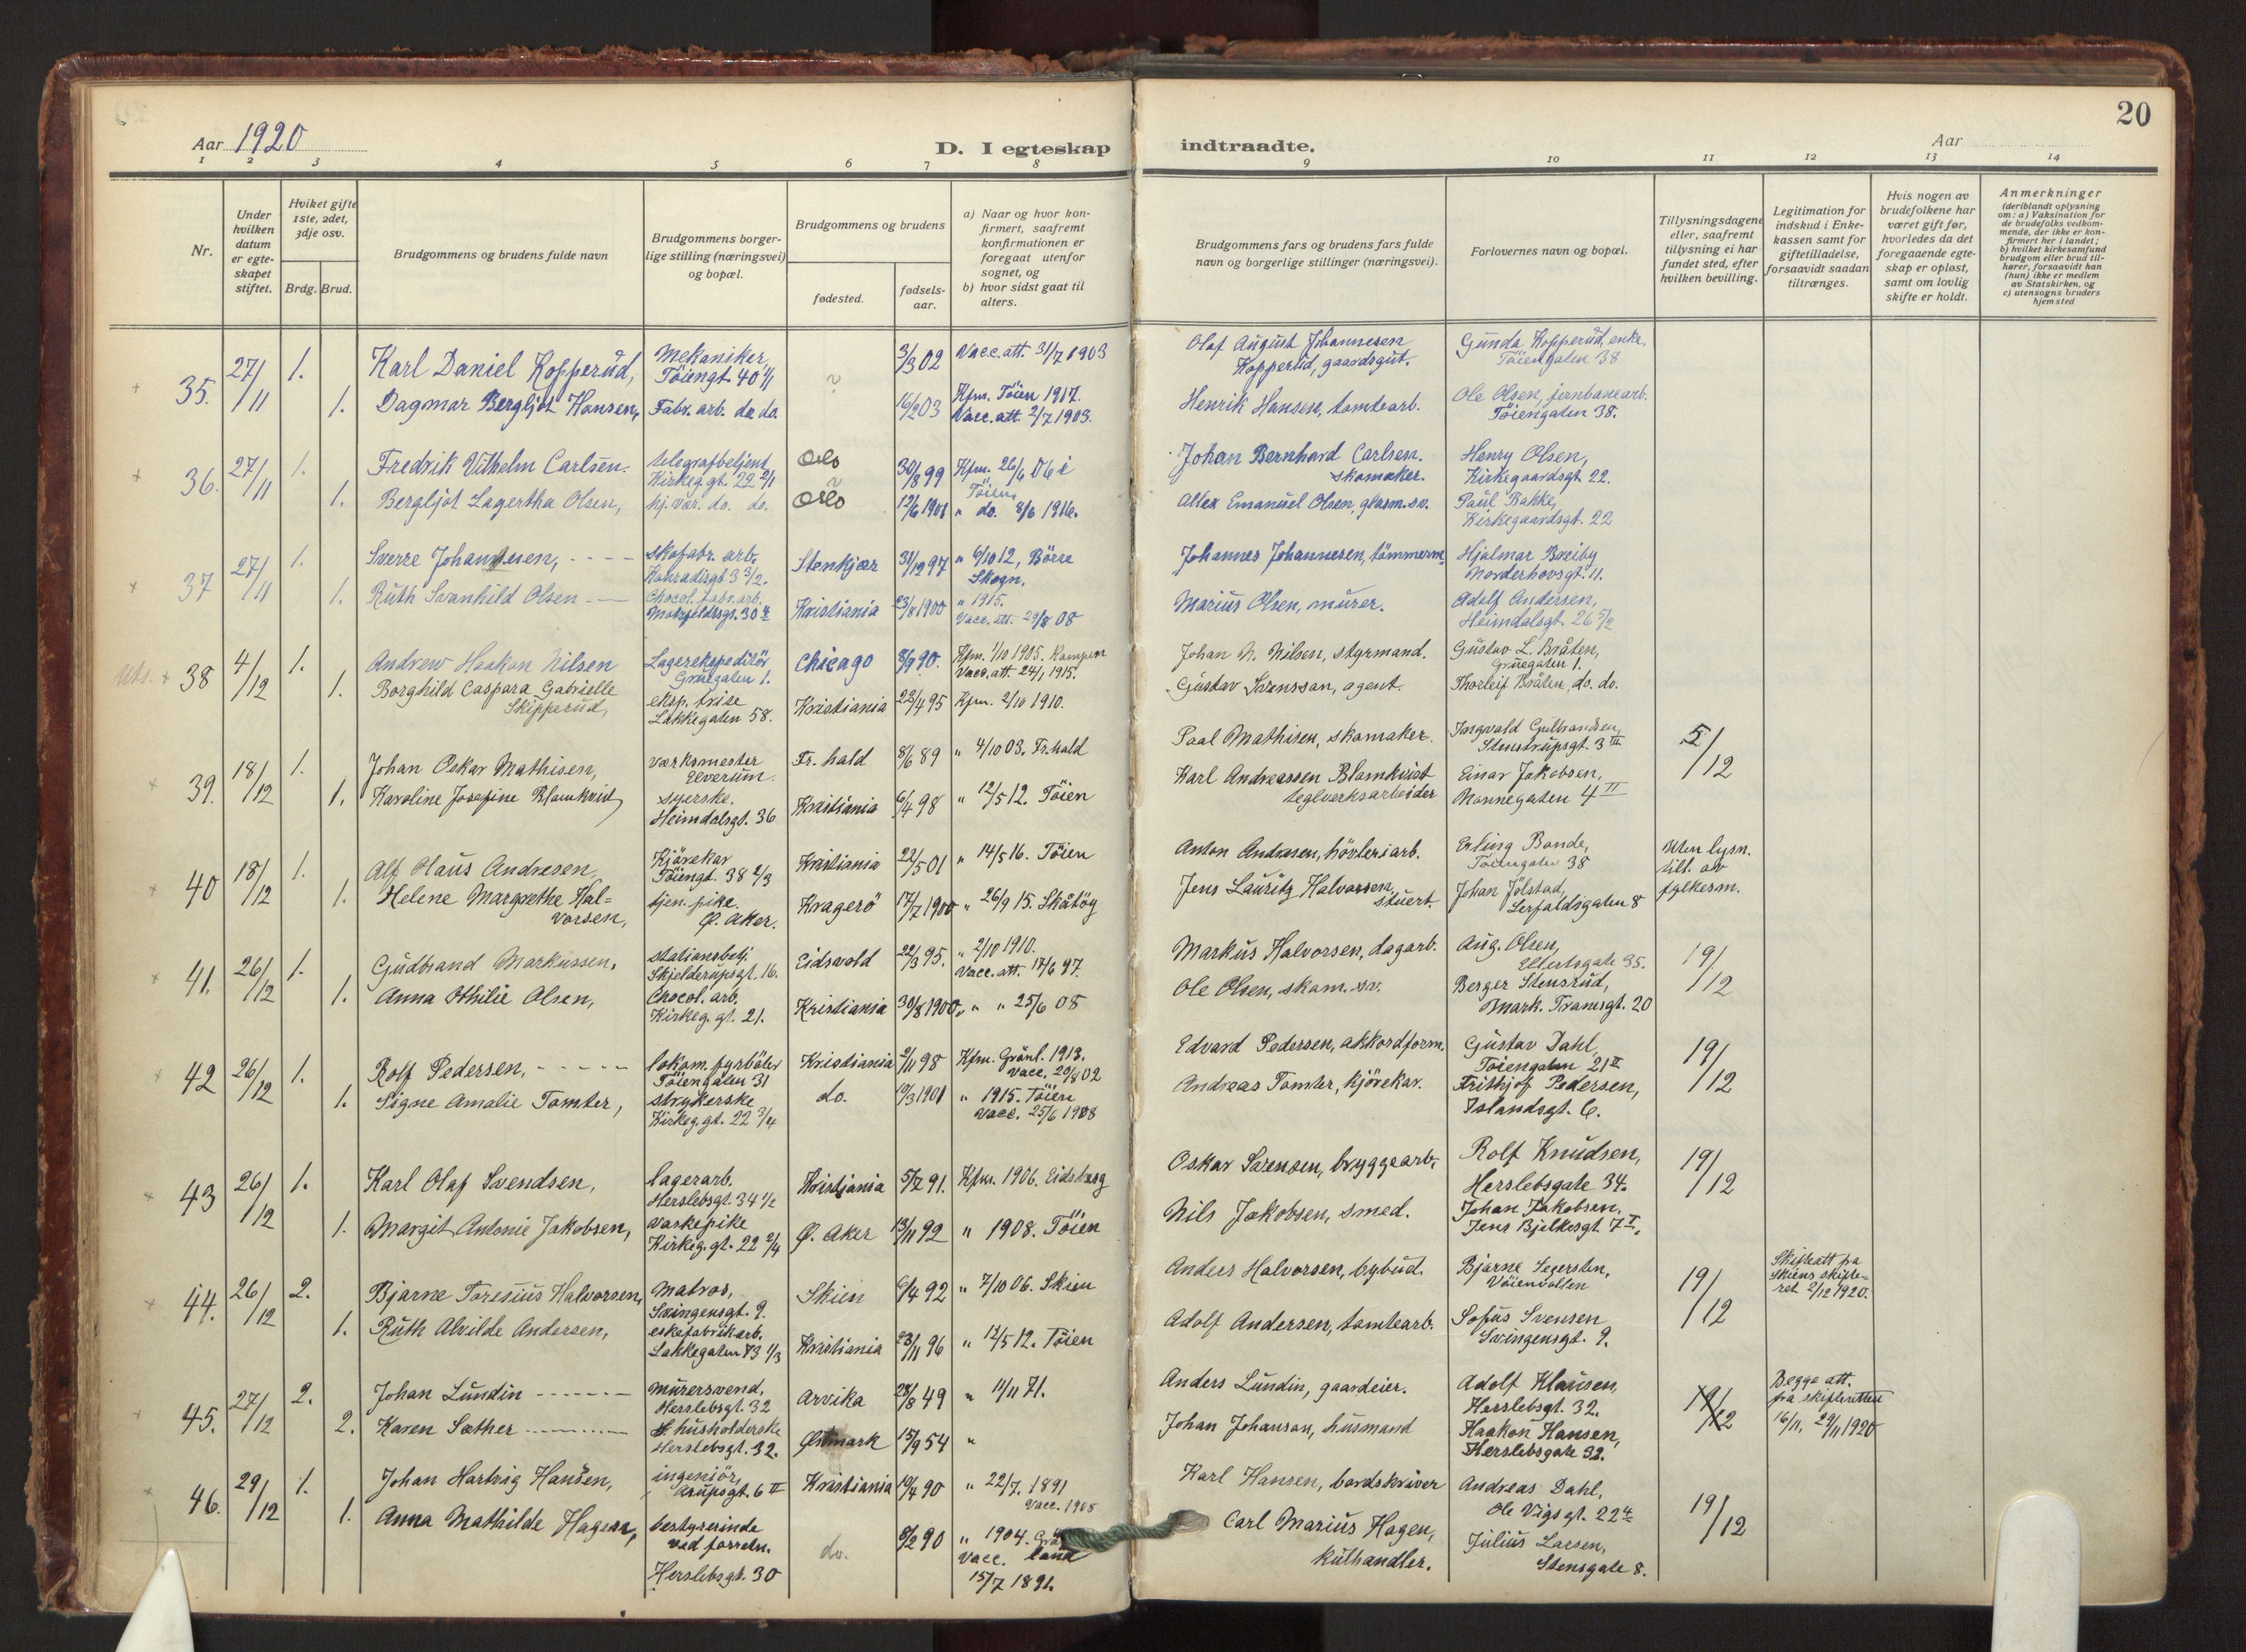 20
Aar 1920
D. I egteskap
indtraadte.
Aar
1 2 3 4 5 6 7 8 9 10 11 12 13 14
Nr.
Under
hvilken
datum
er egte-
skapet
stiftet.
Hviket gifte
1ste, 2det,
3dje osv.
Brdg. Brud.
Brudgommens og brudens fulde navn
Brudgommens borger-
lige stilling (næringsvei)
og bopæl.
Brudgommens og brudens
fødested.
fødsels-
aar.
a) Naar og hvor kon-
firmert, saafremt
konfirmationen er
foregaat utenfor
sognet, og
b) hvor sidst gaat til
alters.
Brudgommens fars og brudens fars fulde
navn og borgerlige stillinger (næringsvei).
Forlovernes navn og bopæl.
Tillysningsdagene
eller, saafremt
tillysning ei har
fundet sted, efter
hvilken bevilling.
Legitimation for
indskud i Enke-
kassen samt for
giftetilladelse,
forsaavidt saadan
tiltrænges.
Hvis nogen av
brudefolkene har
været gift før,
hvorledes da det
foregaaende egte-
skap er opløst,
samt om lovlig
skifte er holdt.
Anmerkninger
(deriblandt oplysning
om: a) Vaksination for
de brudefolks vedkom-
mende, der ikke er kon-
firmert her i landet;
b) hvilket kirkesamfund
brudgom eller brud til-
hører, forsaavidt han
(hun) ikke er medlem
av Statskirken, og
c) utensogns bruders
hjemsted
35. 27/11 1. Karl Daniel Kopperud, Mekaniker, Töiengt. 40 3/3 02 Vacc. att. 31/7 1903 Olaf August Johannesen Kopperud, gaardsgut. Gunda Kopperud, enke. Töiengaten 38
1. Dagmar Bergljot Hansen, Fabr. arb. do do. 16/2 03 Kfm. Töien 1917. Vacc. att. 2/7 1903. Henrik Hansen, tomtearb. Ole Olsen, jernbanearb. Töiengaten 38.
36. 27/11 1. Fredrik Vilhelm Carlsen. telegrafbetjent Kirkeg. gt. 22 2/1 Oslo 30/8 99 Kfm. 26/6 06 i Töien Johan Bernhard Carlsen. skomaker. Henry Olsen, Kirkegaardsgt 22.
1. Bergljot Lagertha Olsen, hj. vær. do. do. Oslo 12/6 1901 " do. 8/6 1916. Emanuel Olsen, glasm. sv. Paul Bakke, Kirkegaardsgt. 22
37 27/11 1. Sverre Johannesen, skofabr. arb. Konradisgt 3 3/2. Stenkjær 31/12 97 " 6/10 12, Börre Skogn. Johannes Johannesen, tömmerm. Hjalmar Breiby Norderhovsgt. 11.
1. Ruth Svanhild Olsen Chocol. fabr. arb. Kristiania 23/8 1900 " 1915. Vacc. att. 29/8 08 Marius Olsen, murer. Adolf Andersen, Heimdalsgt. 26 5/2
38 4/12 1. Andrew Haakon Nilsen Lagerekspeditör Gruegaten 1. Chicago 8/9 90. Kfm. 1/10 1905. Kampen Vacc. att. 24/1 1915. Johan N. Nilsen, styrmand. Gustav L. Bråten, Gruegaten 1.
1. Borghild Caspara Gabrielle Skipperud, eksp. trise Lakkegaten 58. Kristiania 22/4 95 Kfm. 2/10 1910. Gustav Svenssan, agent. Thorleif Bråten, do. do.
39. 18/12 1. Johan Oskar Mathisen, værksmester Elverum. Fr. hald 8/6 89 " 4/10 03. Fr. hald Paal Mathisen, skomaker. Ingvald Gulbrandsen, Stenstrupsgt. 3 III 5/12
1. Karoline Josefine Blomkvist, syerske. Heimdalsgt. 36 Kristiania 6/4 98 " 12/5 12. Töien Karl Andreassen Blomkvist teglverksarbeider Einar Jakobsen, Mønnegaten 4 II
40 18/12 1. Alf Haus Andresen, Kjörekar Töiengt. 38 2/3 Kristiania 22/5 01 " 14/5 16. Töien Anton Andresen, hövleriarb. Erling Bonde, Töiengaten 38 Uten lysn. till. av fylkesm.
1. Helene Margrethe Halvorsen, tjen. pike. Ø. Aker. Kragerö 17/7 1900 " 26/9 15. Skåtöy Jens Lauritz Halvorsen, stuert. Johan Jölstad, Lerfaldsgaten 8
41. 26/12 1. Gudbrand Markussen, stationsbetj. Skjelderupsgt. 16. Eidsvold 22/3 95. " 2/10 1910. Vacc. att. 17/6 97. Markus Halvorsen, dagarb. Aug. Olsen, Eilertsgate 35. 19/12
1. Anna Othilie Olsen, Chocol. arb. Kirkeg. gt. 21. Kristiania 30/8 1900 " " 25/6 08 Ole Olsen, skom. sv. Berger Stensrud, Mark. Tranesgt. 20
42 26/12 1. Rolf Pedersen, lokom. fyrböter Töiengaten 31 Kristiania 2/11 98 Kfm. Grönl. 1913. Vacc. 20/8 02 Edvard Pedersen, akkordform. Gustav Dahl, Töiengaten 21 II 19/12
1. Signe Amalie Tomter, strykerske Kirkeg. gt. 22 3/4 do. 10/3 1901 " 1915. Töien Vacc. 25/6 1908 Andreas Tomter, kjörekar. Frithjof Pedersen, Islandsgt. 6.
43 26/12 1. Karl Olaf Svendsen, lagerarb. Herslebsgt. 34 1/2 Kristiania 5/7 91. Kfm. 1906. Eidsberg Oskar Svensen, bryggearb. Rolf Knudsen, Herslebsgate 34. 19/12
1. Margit Antonie Jakobsen, vaskepike Kirkeg. gt. 22 2/4 Ø. Aker 13/11 92 " 1908. Töien Nils Jakobsen, smed. Johan Jakobsen, Jens Bjelkesgt. 7 I.
44. 26/12 2. Bjarne Toresius Halvorsen, Matros, Svingensgt. 9. Skien 6/4 92 " 7/10 06. Skien Anders Halvorsen, bybud. Bjarne Segersten, Vöienvolden 19/12 Skifteatt fra Skiens skifteret 2/12 1920.
1. Ruth Alvilde Andersen, eskefabrikarb. Lakkegaten 73 1/3 Kristiania 23/11 96 " 12/5 12. Töien Adolf Andersen, tomtearb. Sofus Svensen Svingensgt. 9.
45. 27/12 2. Johan Lundin murersvend, Herslebsgt. 32 Arvika 28/8 49 " 11/11 71. Anders Lundin, gaardeier. Adolf Klausen, Herslebsgt. 32. 19/12 Begge att. fra skifteretten 16/11, 29/11 1920
2. Karen Sæther husholderske Herslebsgt. 32. Østmark 15/9 54 " Johan Johanson, husmand Haakon Hansen, Herslebsgate 32.
46. 29/12 1. Johan Hartvig Hansen, ingeniör, Arupsgt. 6 II Kristiania 10/4 90 " 22/7. 1891 Vacc. 1905 Karl Hansen, bordskriver Andreas Dahl, Ole Vigs gt. 22 19/12
1. Anna Mathilde Hagen, bestyrerinde ved forretn. Herslebsgt. 30 do. 8/2 90 " 1904. land Vacc. 15/7 1891. Carl Marius Hagen, kulhandler. Julius Larsen, Stensgate 8.